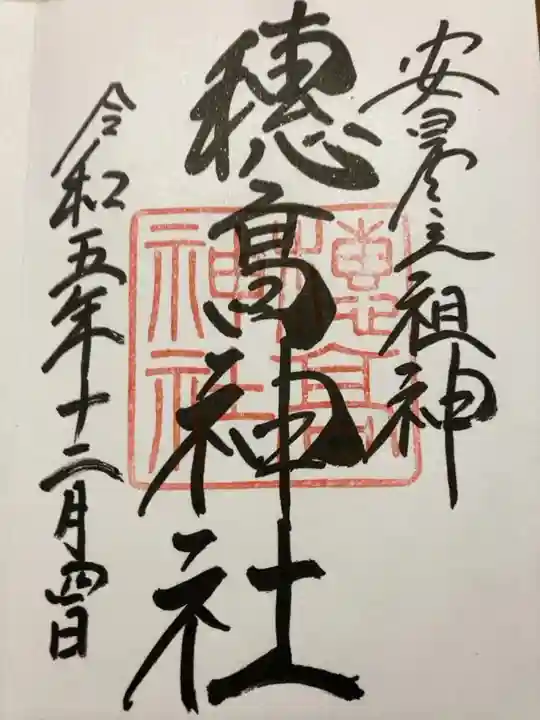 安曇之祖神
穂高神社
穂高
神社
令和五年十二月四日